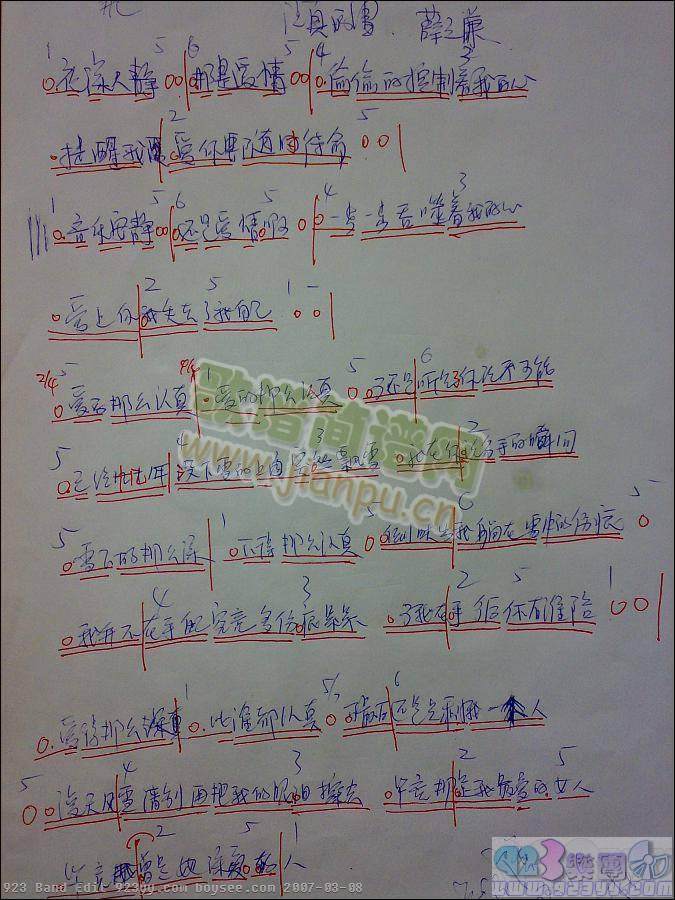 认真的雪 薛之谦
1 5 6 5 4 3
夜深人静 00 那是爱情 00 偷偷的控制着我的心
2 5
提醒我 爱你要随时待命 00
1 5 6 5 4 3
音乐安静 00 还是爱情啊 0 0 一步一步吞噬着我的心
2 5 1 -
爱上你我失去了我自己
2/4 5 4/4 1 5 6
爱得那么认真 爱的那么认真 0 可还是听见你说不可能
5 4 3 2
已经 年没下雪的上海 突然飘雪 就在你说分手的瞬间
5 1 5 6 5
雪下的那么深 下得那么认真 我躺在雪中的伤痕 0
4 3 2 5 1
我并不在乎 究竟多伤痕累累 可我在乎今后你有谁陪 00
1 5 6
爱得那么深 0 比谁都认真 可最后还是只剩我一个人
5 4 3 2 5
0 0 漫天风雪 请别再把我的眼 毕竟那是我最爱的女人
2 5 1
毕竟 曾是她深爱 人
歌谱简谱网
www.jianpu.cn
923 Band Edit 923yy.com boysee.com 2007-03-08
www.923yy.com